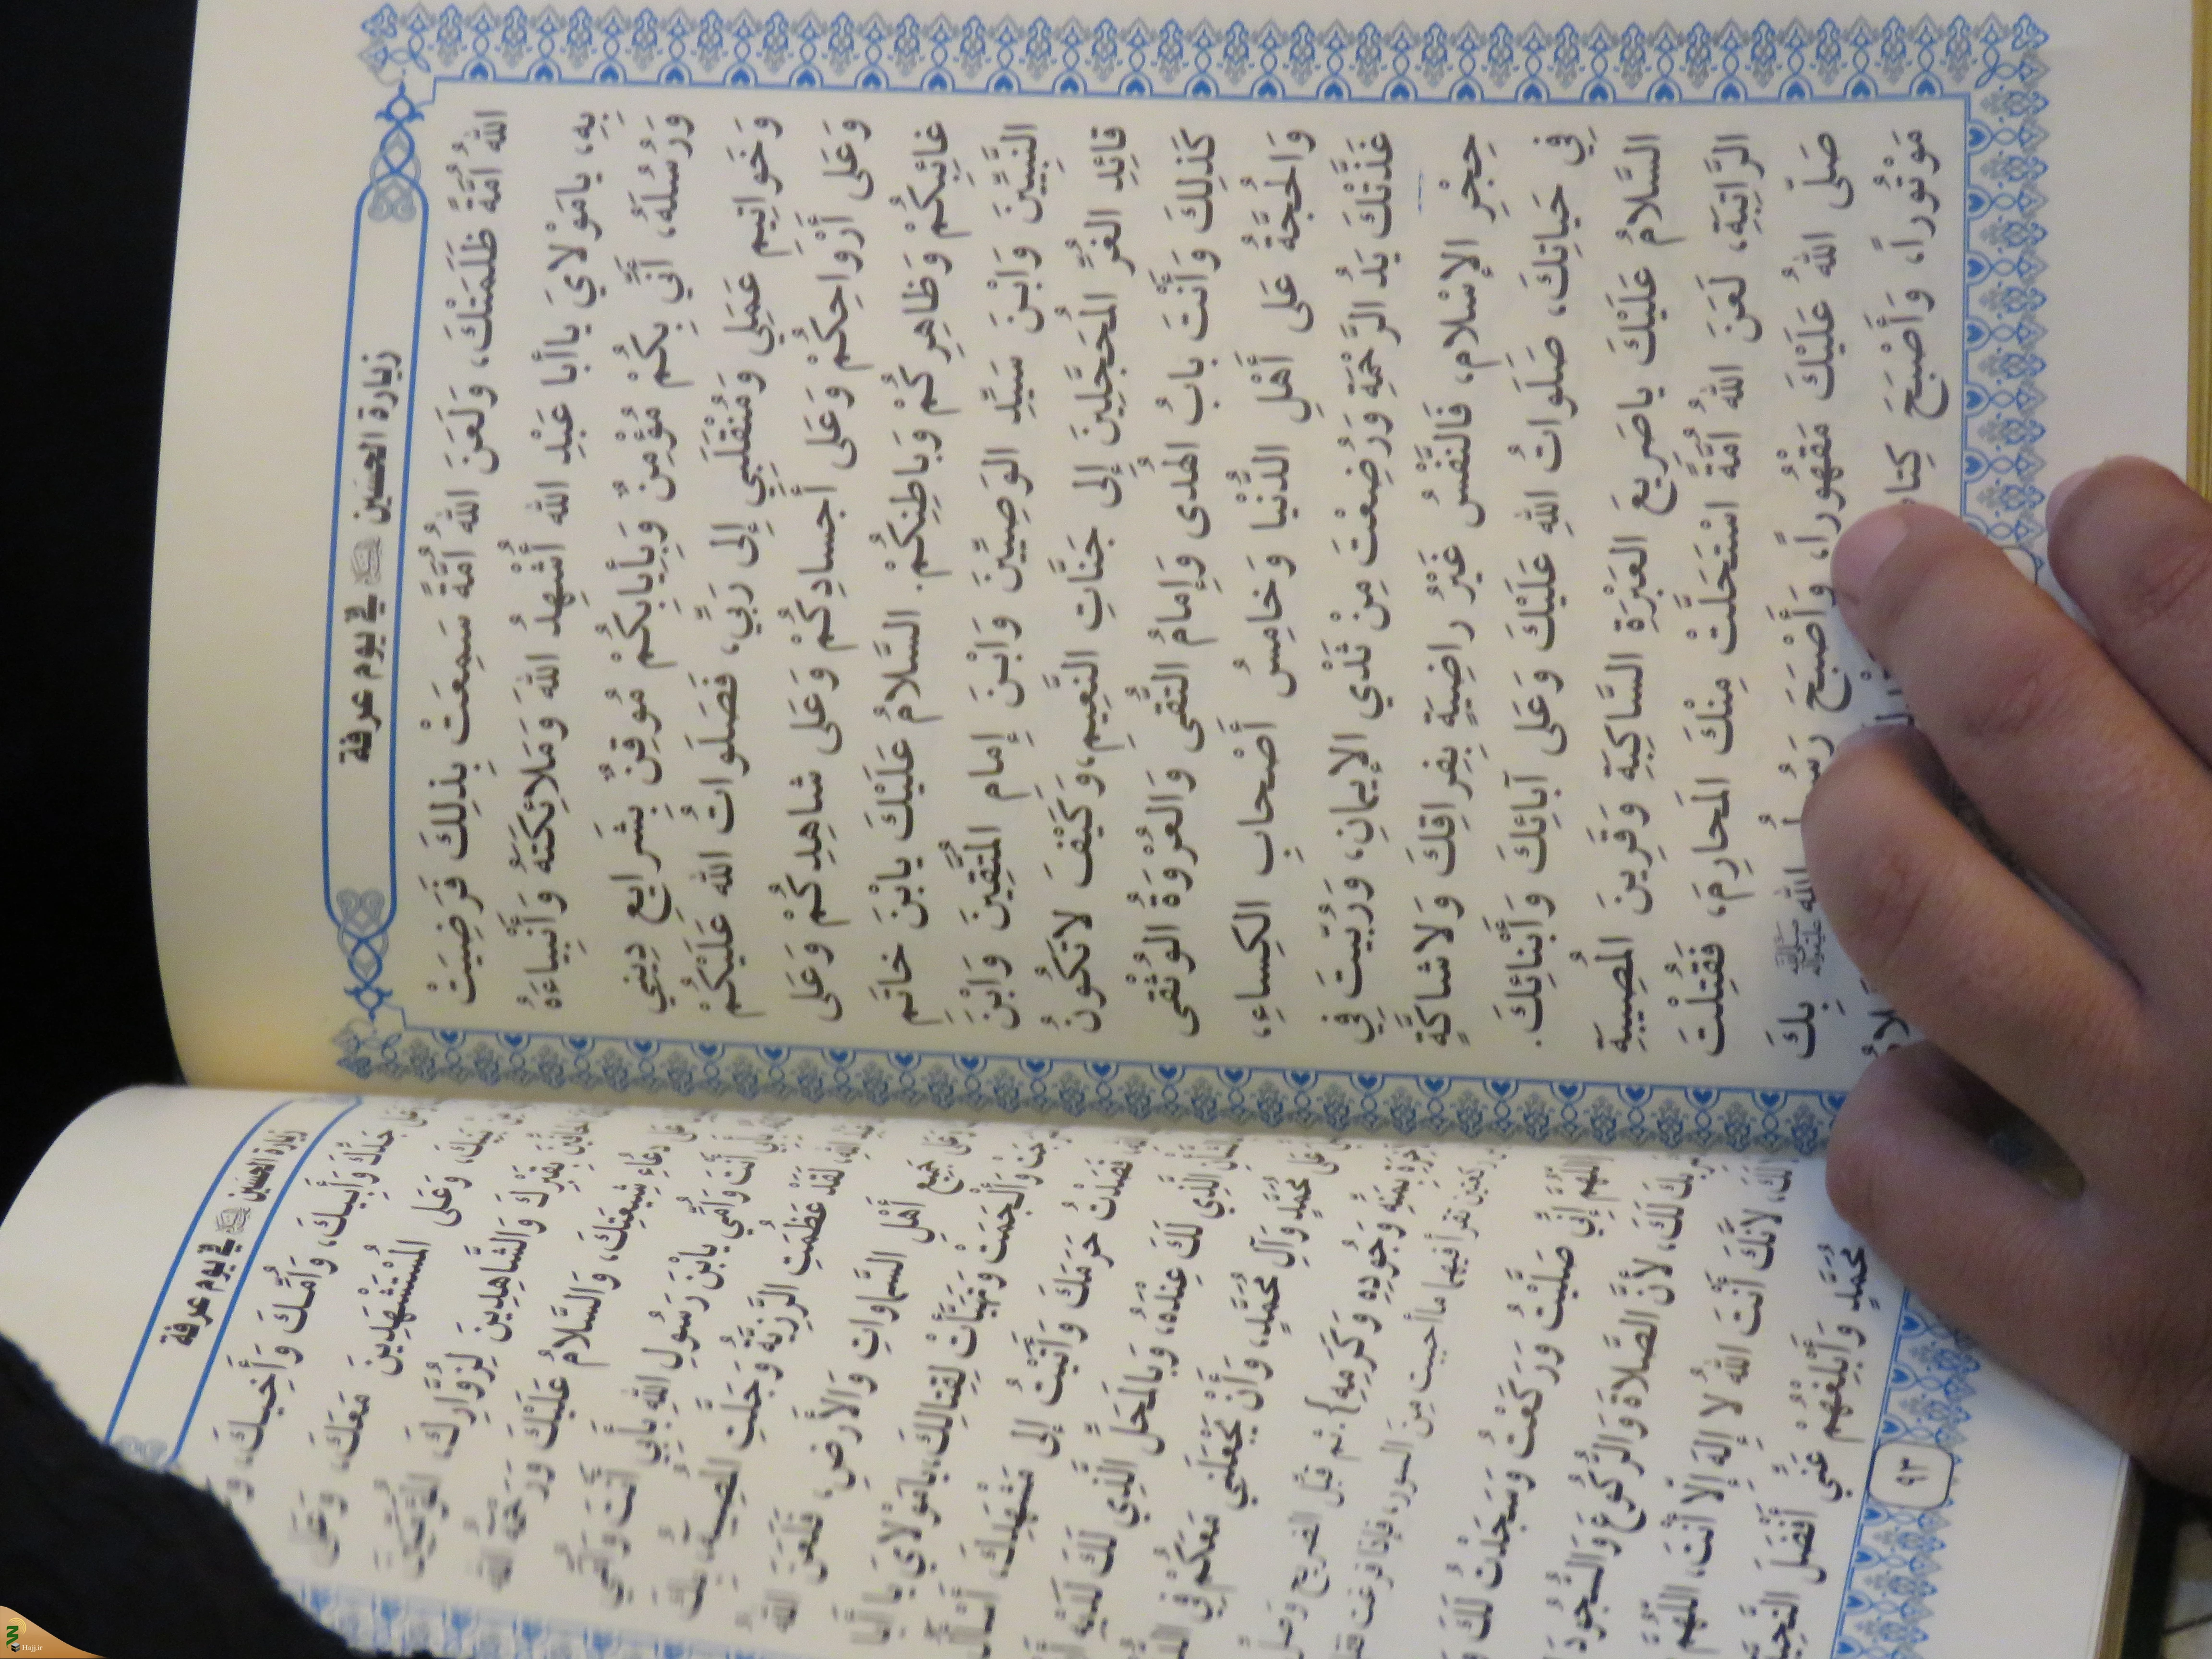 زيارة الحسين في يوم عرفة
الله أُمَّةً ظَلَمَتْكَ، وَلَعَنَ الله أُمَّةً سَمِعَتْ بِذلِكَ فَرَضِيَتْ
بِهِ، يامَوْلايَ ياأبا عَبْدِ الله أُشْهِدُ اللهَ وَمَلائِكَتَهُ وَأَنْبِياءَهُ
وَرُسُلَهُ، أَنِّي بِكُمْ مُؤْمِنٌ وَبِإيابِكُمْ مُوقِنٌ بِشَرايِعِ دِينِي
وَخَواتِيمِ عَمَلِي وَمُنْقَلَبِي إلى رَبِّي، فَصَلَواتُ الله عَلَيْكُمْ
وَعَلى أَرْواحِكُمْ وَعَلى أجسادِكُمْ وَعَلى شاهِدِكُمْ وَعَلى
غائِبِكُمْ وَظاهِرِكُمْ وَباطِنِكُمْ. السَّلامُ عَلَيْكَ يابْنَ خاتَمِ
النَّبِيِّينَ وَابْنَ سَيِّدِ الوَصِيِّينَ وَابْنَ إمام المُتَّقِينَ وَابْنَ
قائِدِ الغُرِّ المُحَجَّلِينَ إلى جَنَّاتِ النَّعِيمِ، وَكَيْفَ لاتَكُونُ
كَذلِكَ وَأَنْتَ بابُ الهُدى وَإمامُ التُّقى وَالعُرْوَةُ الوُثْقى
وَالحُجَّةُ عَلى أَهْلِ الدُّنْيا وَخامِسُ أَصْحابِ الكِساءِ،
غَذَّتْكَ يَدُ الرَّحْمَةِ وَرُضِعْتَ مِنْ ثَدْي الإيمانِ، وَرُبِّيتَ فِي
حِجْرِ الإسْلام، فَالنَّفْسُ غَيْرُ راضِيَةٍ بِفِراقِكَ وَلاشاكَّةٍ
فِي حَياتِكَ، صَلَواتُ اللهِ عَلَيْكَ وَعَلى آبائِكَ وَأَبْنائِكَ.
السَّلامُ عَلَيْكَ ياصَرِيعَ العَبْرَةِ السَّاكِبَةِ وَقَرِينَ المُصِيبَةِ
الرَّاتِبَةِ، لَعَنَ الله أُمَّةً اسْتَحَلَّتْ مِنْكَ المَحارِمَ، فَقُتِلْتَ
صَلَّى اللهُ عَلَيْكَ مَقْهُوراً، وَأَصْبَحَ الله بِكَ
مَوْتُوراً، وَأَصْبَحَ
زيارة الحسين في يوم عرفة
جَدِّكَ وَأَبِيكَ، وَأُمِّكَ وَأَخِيكَ،
وَعَلى المُسْتَشْهَدِينَ مَعَكَ،
بِقَبْرِكَ وَالشَّاهِدِينَ لِزُوَّارِكَ،
دُعاءِ شِيعَتِكَ، وَالسَّلامُ عَلَيْكَ
أَنْتَ وَأُمِّي يابْنَ رَسُولِ اللهِ بِأَبِي أَنْتَ وَأُمِّي
لَقَدْ عَظُمَتِ الرَّزِيَّةُ وَجَلَّتِ
جَمِيعِ أَهْلِ السَّماواتِ وَالأَرْضِ، فَلَعَنَ الله
وَأَلْجَمَتْ وَتَهَيَّأَتْ لِقِتالِكَ، يامَوْلايَ
قَصَدْتُ حَرَمَكَ وَأَتَيْتُ إلى مَشْهَدِكَ،
الَّذِي لَكَ عِنْدَهُ، وَبِالمَحَلِّ الَّذِي لَكَ لَدَيْهِ
مُحَمَّدٍ وَآلِ مُحَمَّدٍ، وَأَنْ يَجْعَلَنِي مَعَكُمْ فِي
وَجُودِهِ وَكَرَمِهِ}. ثم قبّل الضريح
تقرأ فيهما ما أحببت من السور، فإذا فرغت
إِنِّي صَلَّيْتُ وَرَكَعْتُ وَسَجَدْتُ لَكَ
لَكَ، لأَنَّ الصَّلاةَ وَالرُّكُوعَ وَالسُّجُودَ
لأَنَّكَ أَنْتَ اللهُ لا إلهَ إلاّ أَنْتَ، اللهُمَّ
مُحَمَّدٍ وَأَبْلِغْهُمْ عَنِّي أَفْضَلَ
٩٣
Hajj.ir